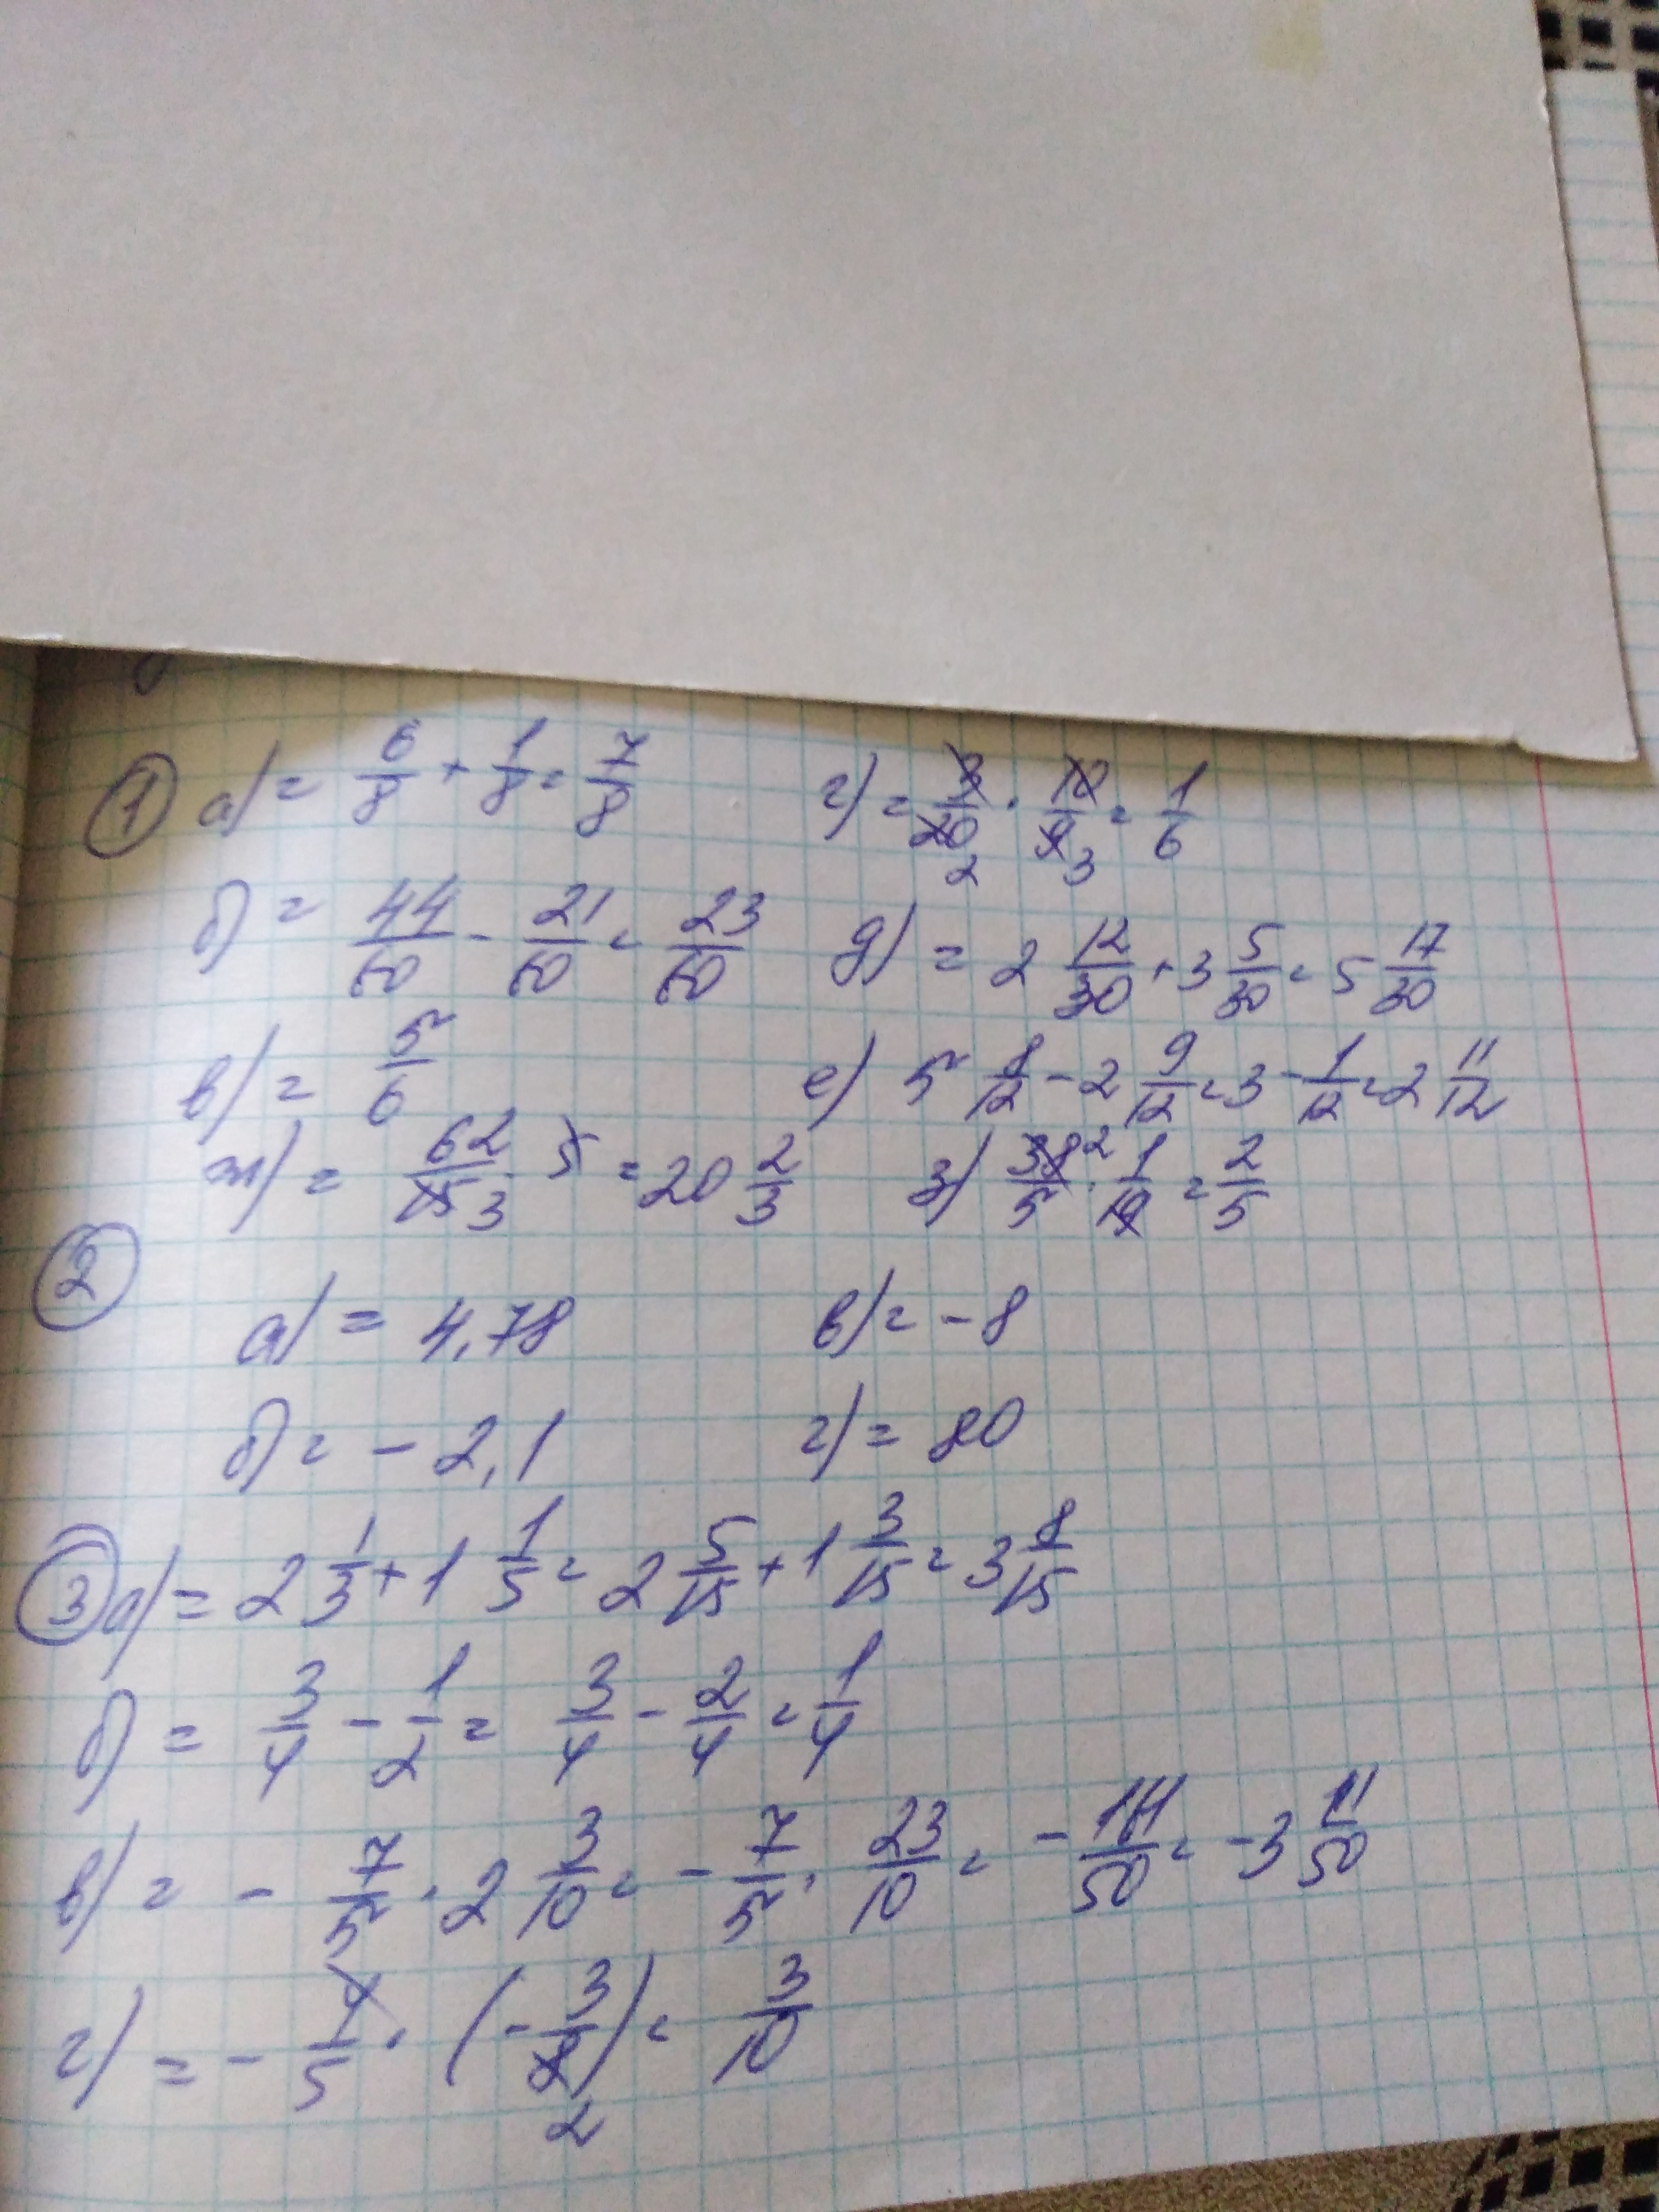 ① а) = 6/8 + 1/8 = 7/8 г) = 3/20 · 10/9 = 1/6
2 3
б) = 44/60 - 21/60 = 23/60 д) = 2 12/30 + 3 5/30 = 5 17/30
в) = 5/6 е) 5 8/12 - 2 9/12 = 3 - 1/12 = 2 11/12
ж) = 62/15 3 · 5 = 20 2/3 з) 38/5 2 · 1/19 = 2/5
②
а) = 4,78 в) = -8
б) = -2,1 г) = 80
③ а) = 2 1/3 + 1 1/5 = 2 5/15 + 1 3/15 = 3 8/15
б) = 3/4 - 1/2 = 3/4 - 2/4 = 1/4
в) = - 7/5 · 2 3/10 = - 7/5 · 23/10 = - 161/50 = -3 11/50
г) = - 4/5 · (- 3/8) = 3/10
2